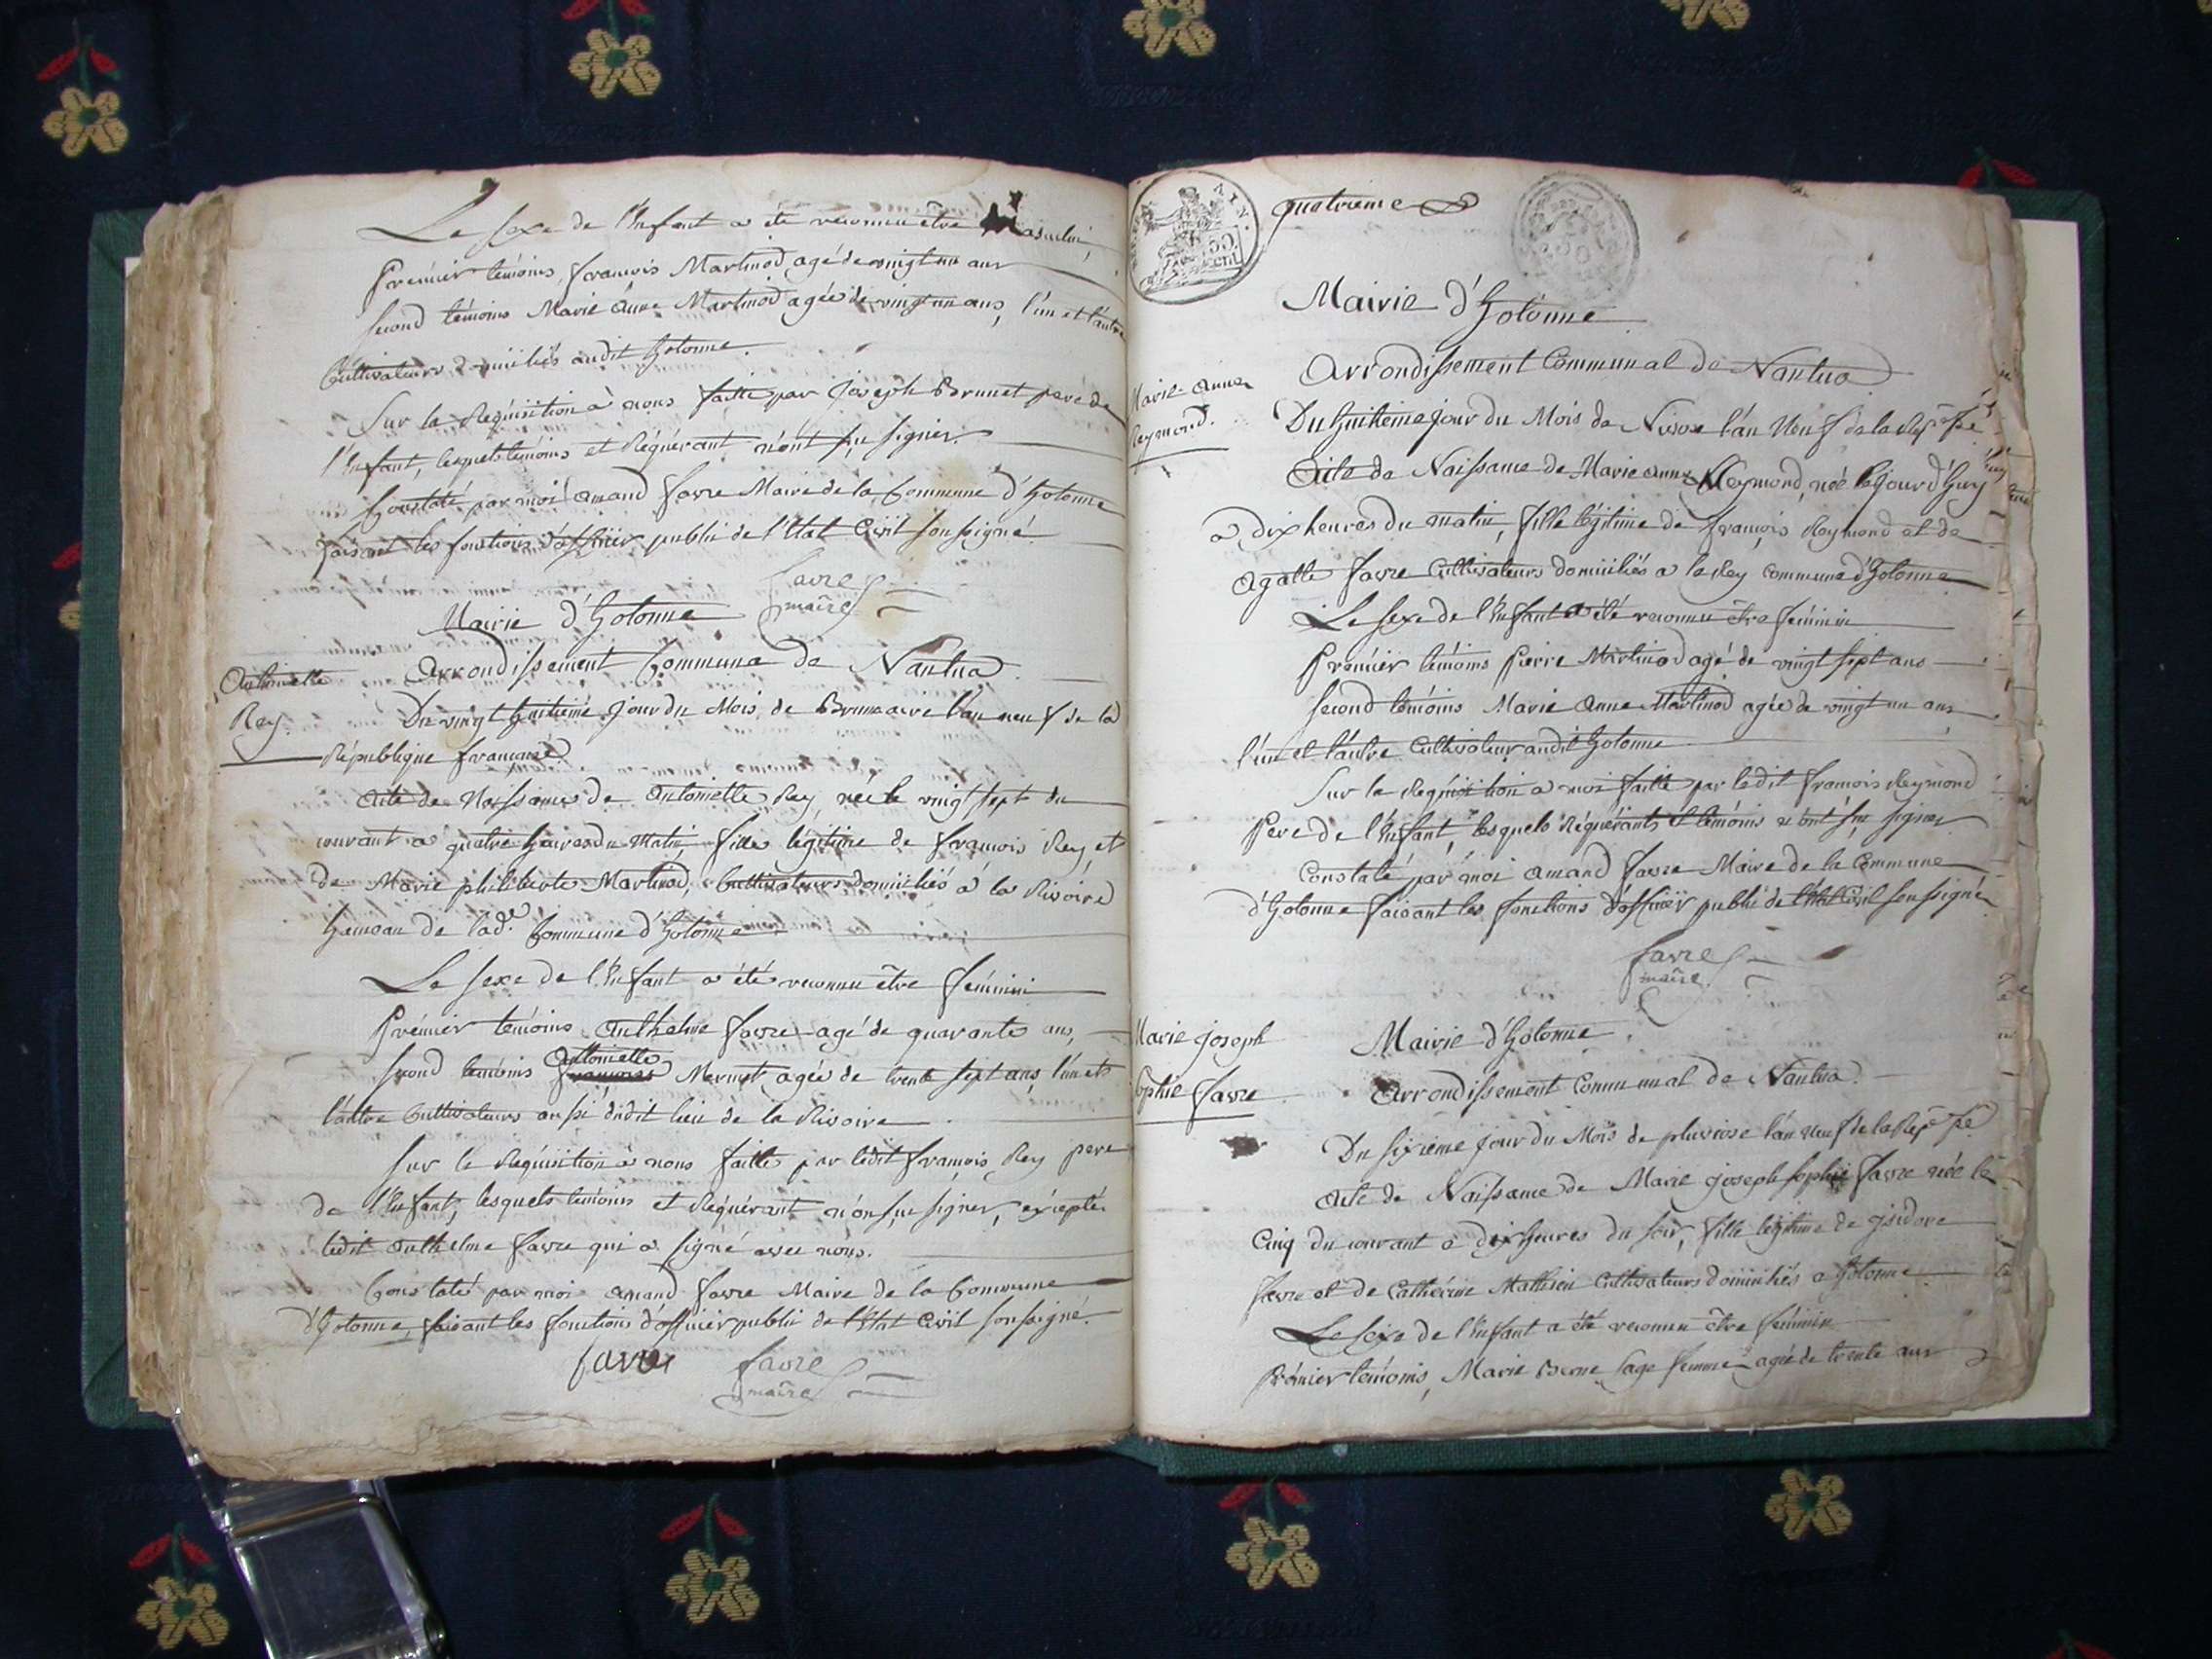 Le sexe de l'Enfant a été reconnu être Masculin
Premier témoins, françois Martinod agé de vingt un ans
second témoins Marie Anne Martinod agée de vingt un ans, l'un et l'autre
Cultivateurs domiciliés audit hotonne.
Sur la Réquisition à nous faitte par Joseph Brunet pere de
l'Enfant, lesquels témoins et Réquérant n'ont su signer.
Constaté par moi amand favre Maire de la Commune d'hotonne
faisant les fonctions d'officier public de l'Etat Civil soussigné
favre
maire
Mairie d'hotonne
Arrondissement Communa de Nantua
Antoinette
Rey.
Du vingt huitiéme jour du Mois de Brumaire l'an neuf de la
République française
Acte de Naissance de Antoinette Rey, née le vingt sept du
courant a quatre heures du Matin fille légitime de françois Rey, et
de Marie philiberte Martinod, Cultivateurs domiciliés a la Rivoire
hameau de lad.e Commune d'hotonne
Le sexe de l'Enfant a été reconnu être féminin
Prémier témoins Anthelme favre agé de quarante ans,
Antoinette
second témoins françoise Mermet agée de trente sept ans, l'un et
l'autre Cultivateurs aussi dudit lieu de la Rivoire
sur la Réquisition à nous faitte par ledit françois Rey pere
de l'Enfant, lesquels témoins et Réquérant n'ont su signer, éxcepté
ledit anthelme favre qui a signé avec nous.
Constaté par moi amand favre Maire de la Commune
d'hotonne, faisant les fonctions d'officier public de l'Etat Civil soussigné.
favre favre
maire
quatrieme
50
Mairie d'hotonne
Arrondissement Communal de Nantua
Marie-anne
Reymond.
Du huitieme jour du Mois de Nivose l'an Neuf de la Rep.e f.se
Acte de Naissance de Marie anne Reymond, née le jour d'huy
a dix heures du matin, fille légitime de françois Reymond et de
Agatte favre Cultivateurs domiciliés a la Rey commune d'hotonne
Le sexe de l'Enfant a été reconnu être féminin
Prémier témoins Pierre Martinod agé de vingt sept ans
second témoins Marie Anne Martinod agée de vingt un ans
l'un et l'autre Cultivateur audit hotonne
Sur la Réquisition a moi faitte par ledit françois Reymond
Pere de l'Enfant, lesquels Réquérants et témoins n'ont sçu signer
Constaté par moi amand favre Maire de la Commune
d'hotonne faisant les fonctions d'officier public de l'Etat Civil soussigné
favre
maire.
Marie joseph
Sophie favre
Mairie d'hotonne
Arrondissement Communal de Nantua.
Du sixieme jour du Mois de pluviose l'an neuf de la Rep.e f.se
Acte de Naissance de Marie joseph sophie favre née le
Cinq du courant à dix heures du soir, fille légitime de jsidore
favre et de Cathérine Mathieu Cultivateurs domiciliés a hotonne
Le sexe de l'Enfant a été reconnu être féminin
Prémier témoins, Marie Berne Sage femme agée de trente ans